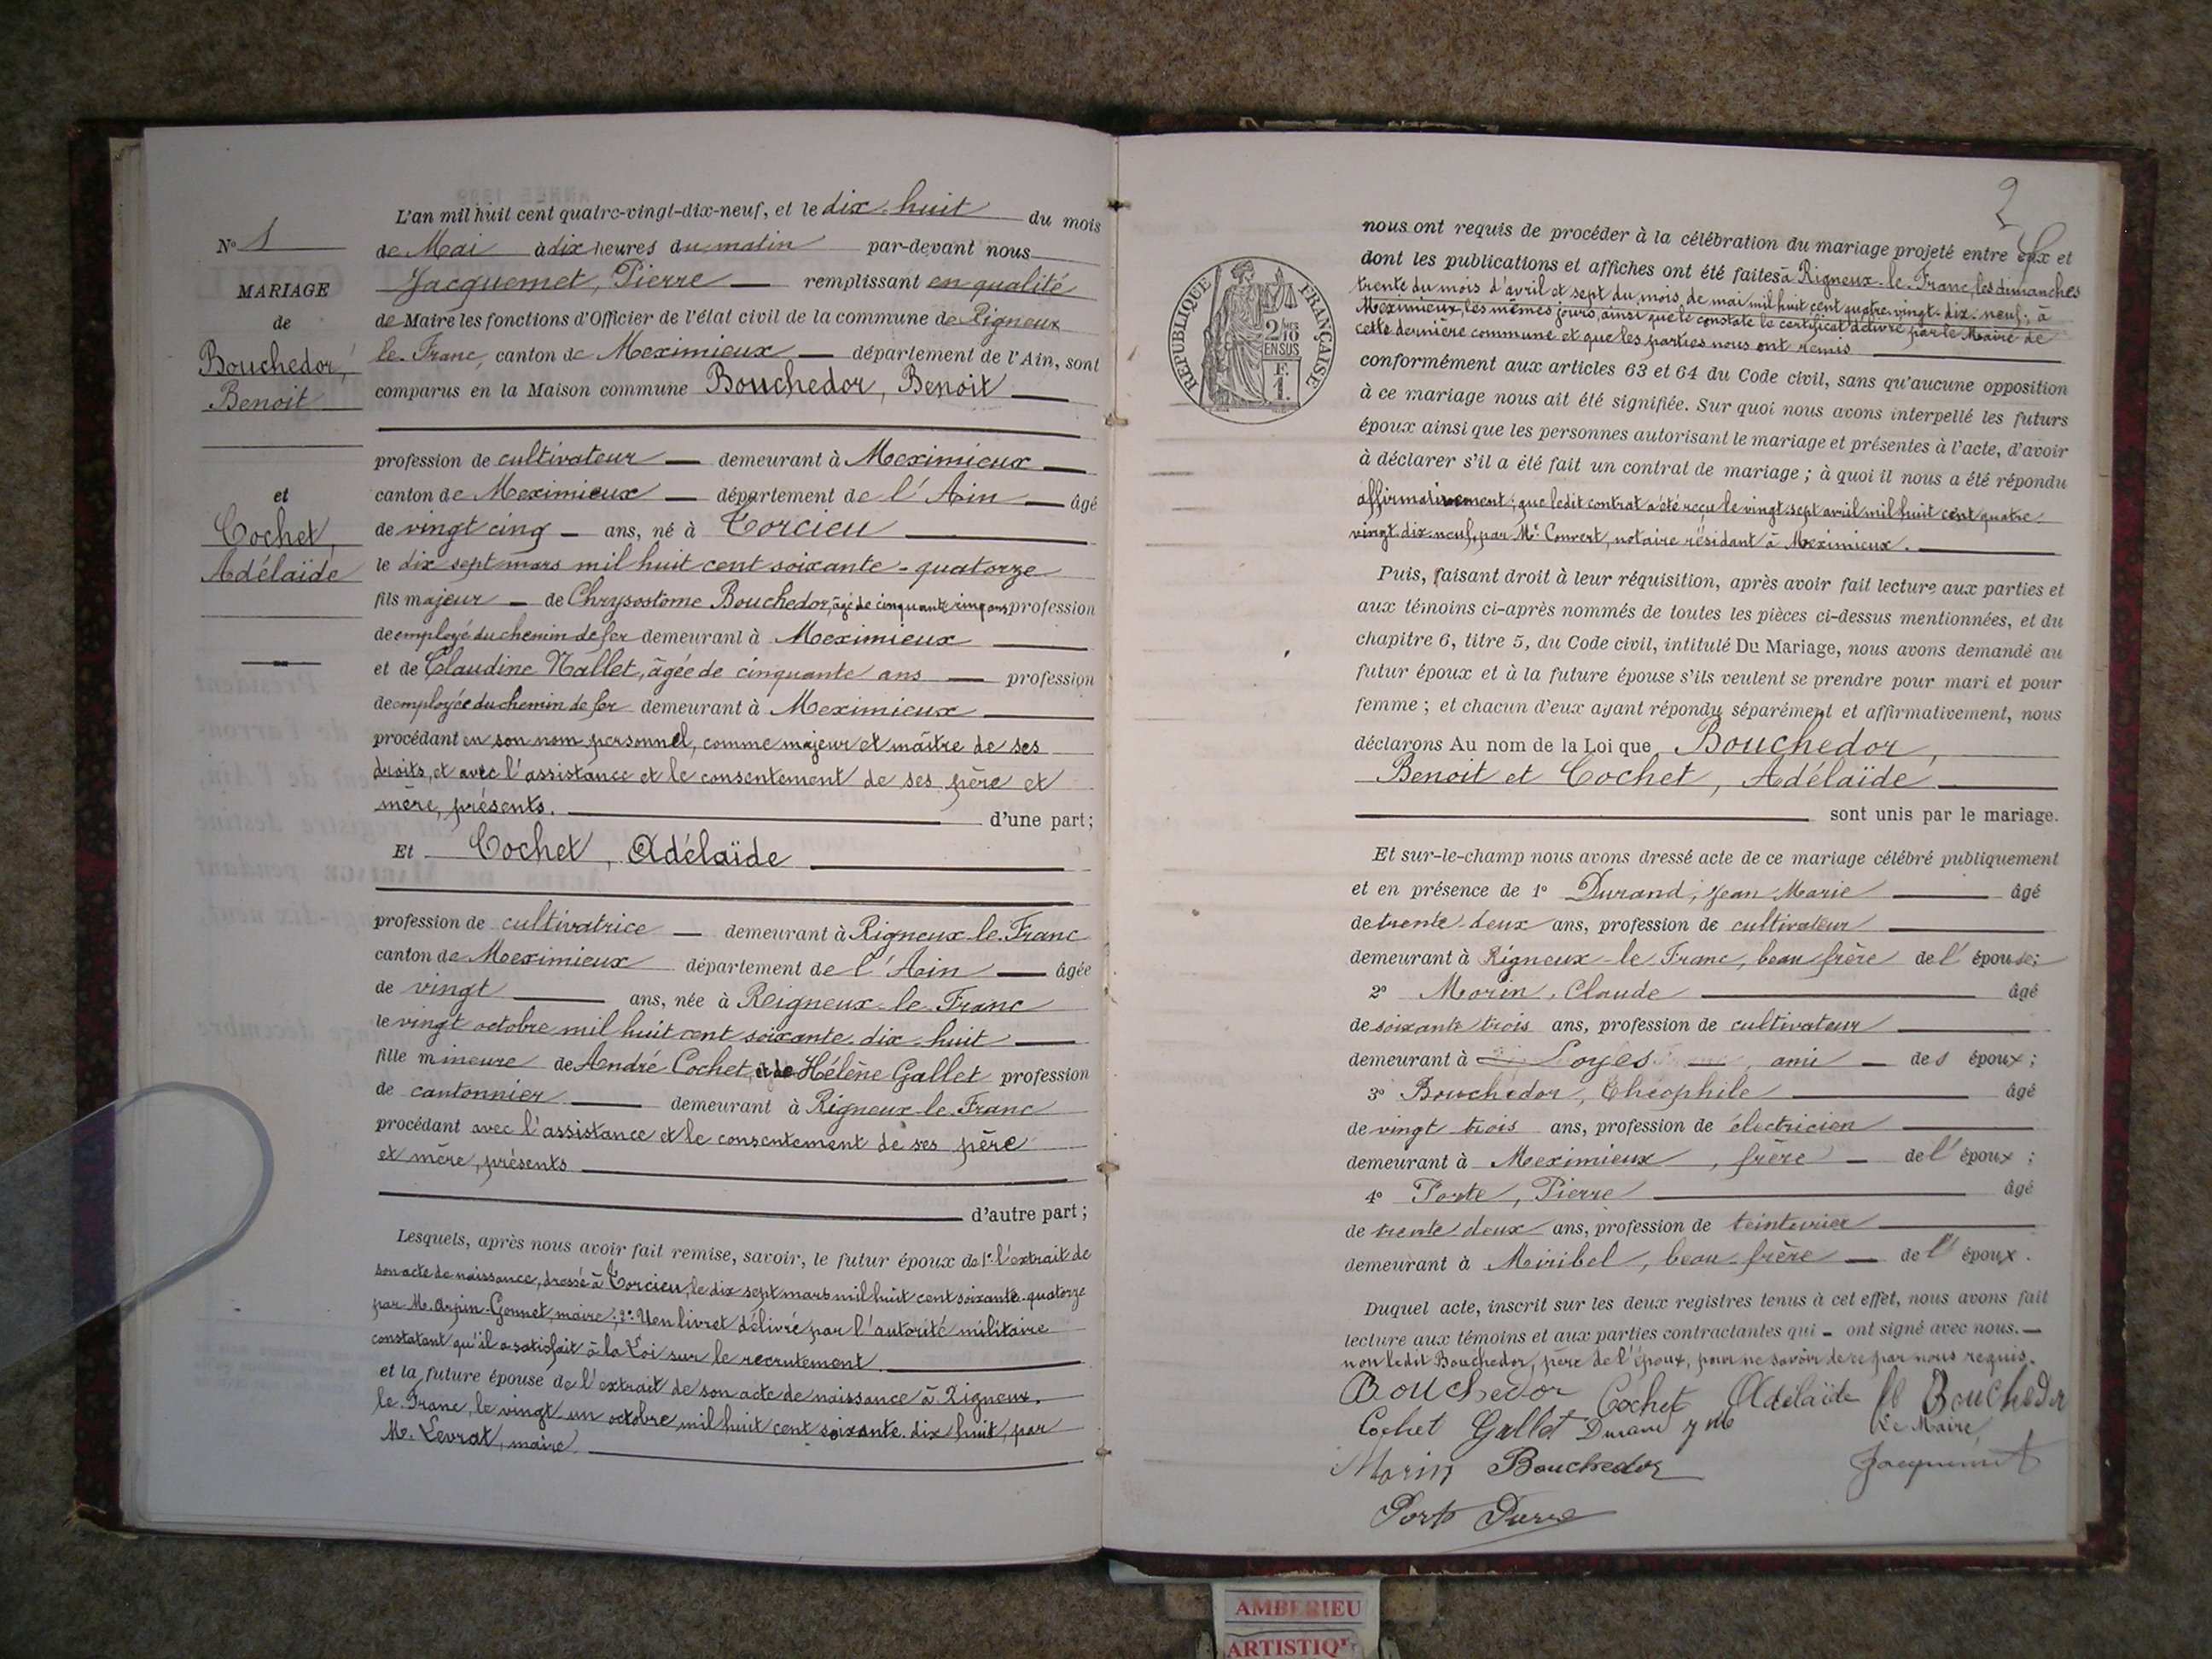 L'an mil huit cent quatre-vingt-dix-neuf, et le dix-huit du mois
de Mai à dix heures du matin par-devant nous
Jacquemet, Pierre remplissant en qualité
de Maire les fonctions d'Officier de l'état civil de la commune de Rigneux
le-Franc, canton de Meximieux département de l'Ain, sont
comparus en la Maison commune Bouchedor, Benoit
profession de cultivateur demeurant à Meximieux
canton de Meximieux département de l'Ain âgé
de vingt cinq ans, né à Torcieu
le dix sept mars mil huit cent soixante-quatorze
fils majeur de Chrysostome Bouchedor, âgé de cinquante cinq ans profession
de employé du chemin de fer demeurant à Meximieux
et de Claudine Nallet, âgée de cinquante ans profession
de employée du chemin de fer demeurant à Meximieux
procédant en son nom personnel, comme majeur et maître de ses
droits, et avec l'assistance et le consentement de ses père et
mère, présents. d'une part;
Et Cochet, Adélaïde
profession de cultivatrice demeurant à Rigneux-le-Franc
canton de Meximieux département de l'Ain âgée
de vingt ans, née à Rigneux-le-Franc
le vingt octobre mil huit cent soixante-dix-huit
fille mineure de André Cochet, et de Hélène Gallet profession
de cantonnier demeurant à Rigneux-le-Franc
procédant avec l'assistance et le consentement de ses père
et mère, présents
d'autre part;
Lesquels, après nous avoir fait remise, savoir, le futur époux de 1° l'extrait de
son acte de naissance, dressé à Torcieu, le dix sept mars mil huit cent soixante-quatorze
par M. Arpin-Gonnet, maire; 2° Un livret délivré par l'autorité militaire
constatant qu'il a satisfait à la Loi sur le recrutement.
et la future épouse de l'extrait de son acte de naissance à Rigneux-
le-Franc, le vingt-un octobre mil huit cent soixante-dix huit, par
M. Levrat, maire.
N° 1
MARIAGE
de
Bouchedor,
Benoit
et
Cochet,
Adélaïde
2
nous ont requis de procéder à la célébration du mariage projeté entre eux et
dont les publications et affiches ont été faites à Rigneux-le-Franc, les dimanches
trente du mois d'avril et sept du mois de mai mil huit cent quatre-vingt-dix-neuf; à
Meximieux, les mêmes jours, ainsi que le constate le certificat délivré par le Maire de
cette dernière commune et que les parties nous ont remis
conformément aux articles 63 et 64 du Code civil, sans qu'aucune opposition
à ce mariage nous ait été signifiée. Sur quoi nous avons interpellé les futurs
époux ainsi que les personnes autorisant le mariage et présentes à l'acte, d'avoir
à déclarer s'il a été fait un contrat de mariage; à quoi il nous a été répondu
affirmativement; que ledit contrat a été reçu le vingt sept avril mil huit cent quatre-
vingt-dix-neuf, par Me Convert, notaire résidant à Meximieux.
Puis, faisant droit à leur réquisition, après avoir fait lecture aux parties et
aux témoins ci-après nommés de toutes les pièces ci-dessus mentionnées, et du
chapitre 6, titre 5, du Code civil, intitulé Du Mariage, nous avons demandé au
futur époux et à la future épouse s'ils veulent se prendre pour mari et pour
femme; et chacun d'eux ayant répondu séparément et affirmativement, nous
déclarons Au nom de la Loi que Bouchedor,
Benoit et Cochet, Adélaïde
sont unis par le mariage.
Et sur-le-champ nous avons dressé acte de ce mariage célébré publiquement
et en présence de 1° Durand, Jean Marie âgé
de trente-deux ans, profession de cultivateur
demeurant à Rigneux-le Franc, beau frère de l'épouse;
2° Morin, Claude âgé
de soixante trois ans, profession de cultivateur
demeurant à Loyes ami des époux;
3° Bouchedor, Théophile âgé
de vingt trois ans, profession de électricien
demeurant à Meximieux, frère de l'époux;
4° Porte, Pierre âgé
de trente deux ans, profession de teinturier
demeurant à Miribel, beau-frère de l'époux.
Duquel acte, inscrit sur les deux registres tenus à cet effet, nous avons fait
lecture aux témoins et aux parties contractantes qui ont signé avec nous.
non ledit Bouchedor, père de l'époux, pour ne savoir de ce par nous requis.
Bouchedor Cochet Adelaïde Bouchedor
Cochet Gallet Durand J M Le Maire,
Morin Bouchedor Jacquemet
Porte Pierre
REPUBLIQUE FRANÇAISE
2/10 EN SUS
F. 1.
AMBERIEU
ARTISTIQ